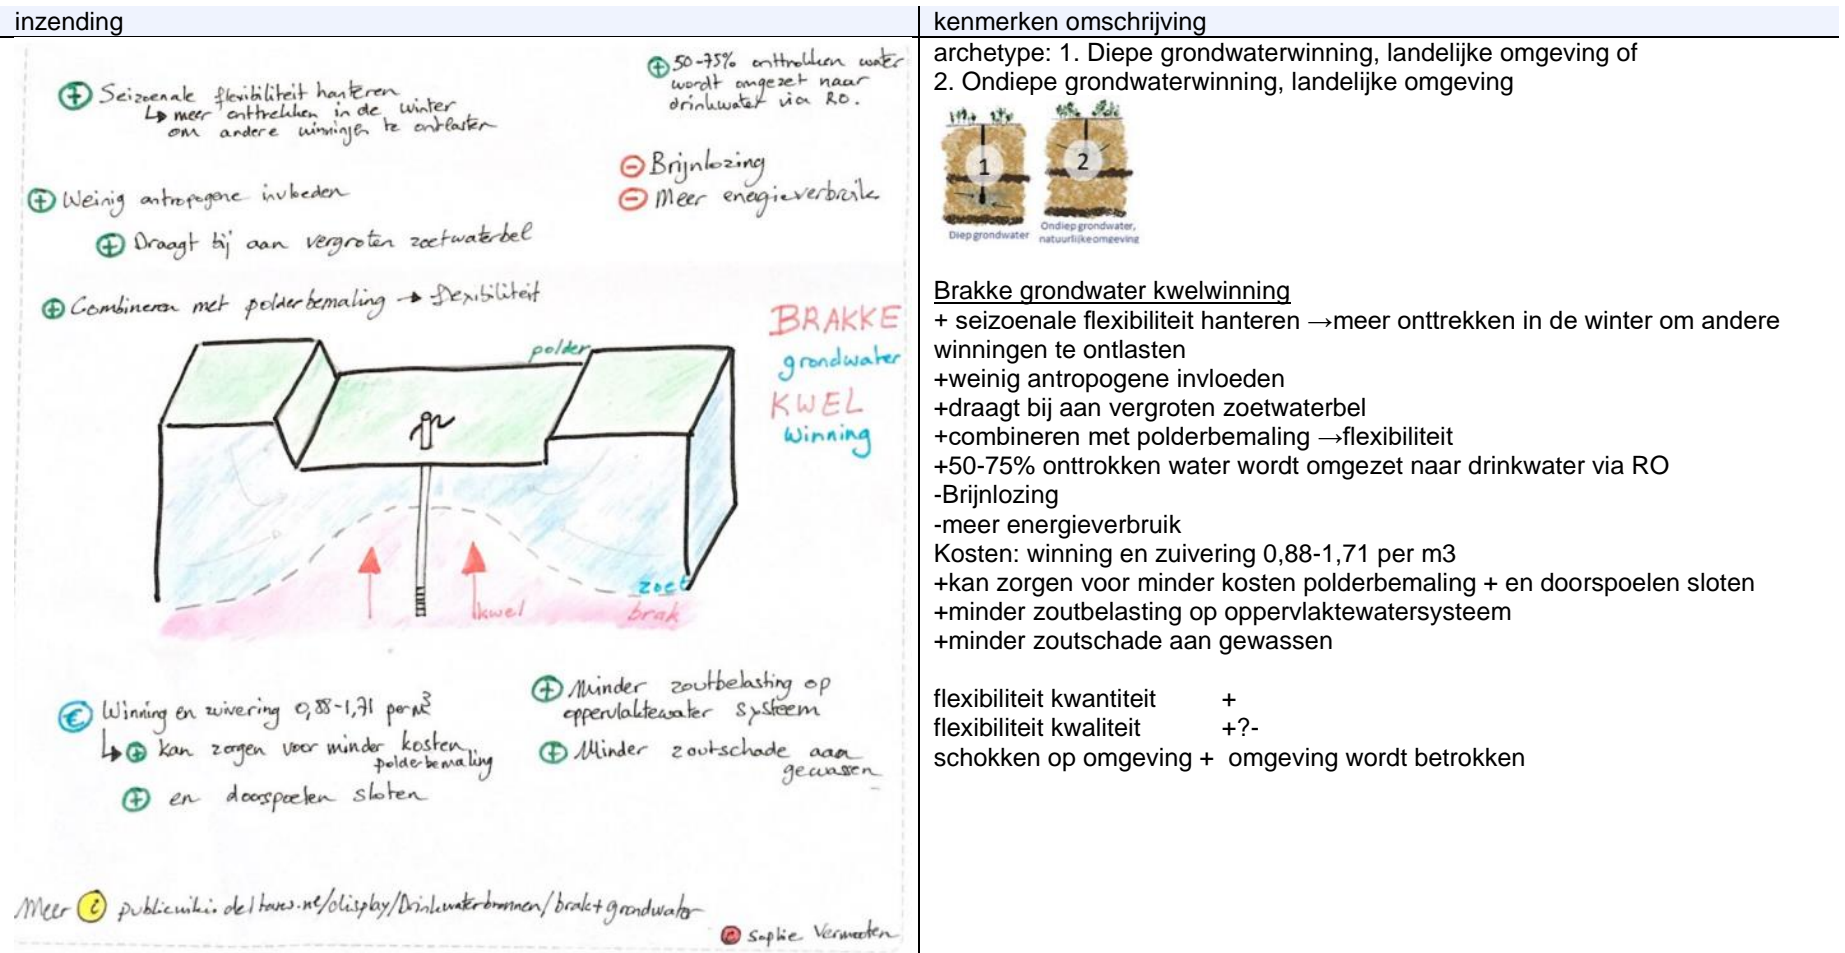 inzending
kenmerken omschrijving
+ Seizoenale flexibiliteit hanteren
↳ meer onttrekken in de winter
om andere winningen te ontlasten
+ 50-75% onttrokken water
wordt omgezet naar
drinkwater via RO.
- Brijnlozing
- Meer energieverbruik
+ Weinig antropogene invloeden
+ Draagt bij aan vergroten zoetwaterbel
+ Combineren met polderbemaling → flexibiliteit
BRAKKE
grondwater
KWEL
winning
polder
zoet
brak
kwel
€ Winning en zuivering 0,88-1,71 per m³
↳ + kan zorgen voor minder kosten
polderbemaling
+ en doorspoelen sloten
+ Minder zoutbelasting op
oppervlaktewater systeem
+ Minder zoutschade aan
gewassen
Meer i publicwiki.deltares.nl/display/Drinkwaterbronnen/brak+grondwater
© Sophie Vermooten
archetype: 1. Diepe grondwaterwinning, landelijke omgeving of
2. Ondiepe grondwaterwinning, landelijke omgeving
1
2
Diep grondwater
Ondiep grondwater,
natuurlijke omgeving
Brakke grondwater kwelwinning
+ seizoenale flexibiliteit hanteren →meer onttrekken in de winter om andere
winningen te ontlasten
+weinig antropogene invloeden
+draagt bij aan vergroten zoetwaterbel
+combineren met polderbemaling →flexibiliteit
+50-75% onttrokken water wordt omgezet naar drinkwater via RO
-Brijnlozing
-meer energieverbruik
Kosten: winning en zuivering 0,88-1,71 per m3
+kan zorgen voor minder kosten polderbemaling + en doorspoelen sloten
+minder zoutbelasting op oppervlaktewatersysteem
+minder zoutschade aan gewassen
flexibiliteit kwantiteit +
flexibiliteit kwaliteit +?-
schokken op omgeving + omgeving wordt betrokken